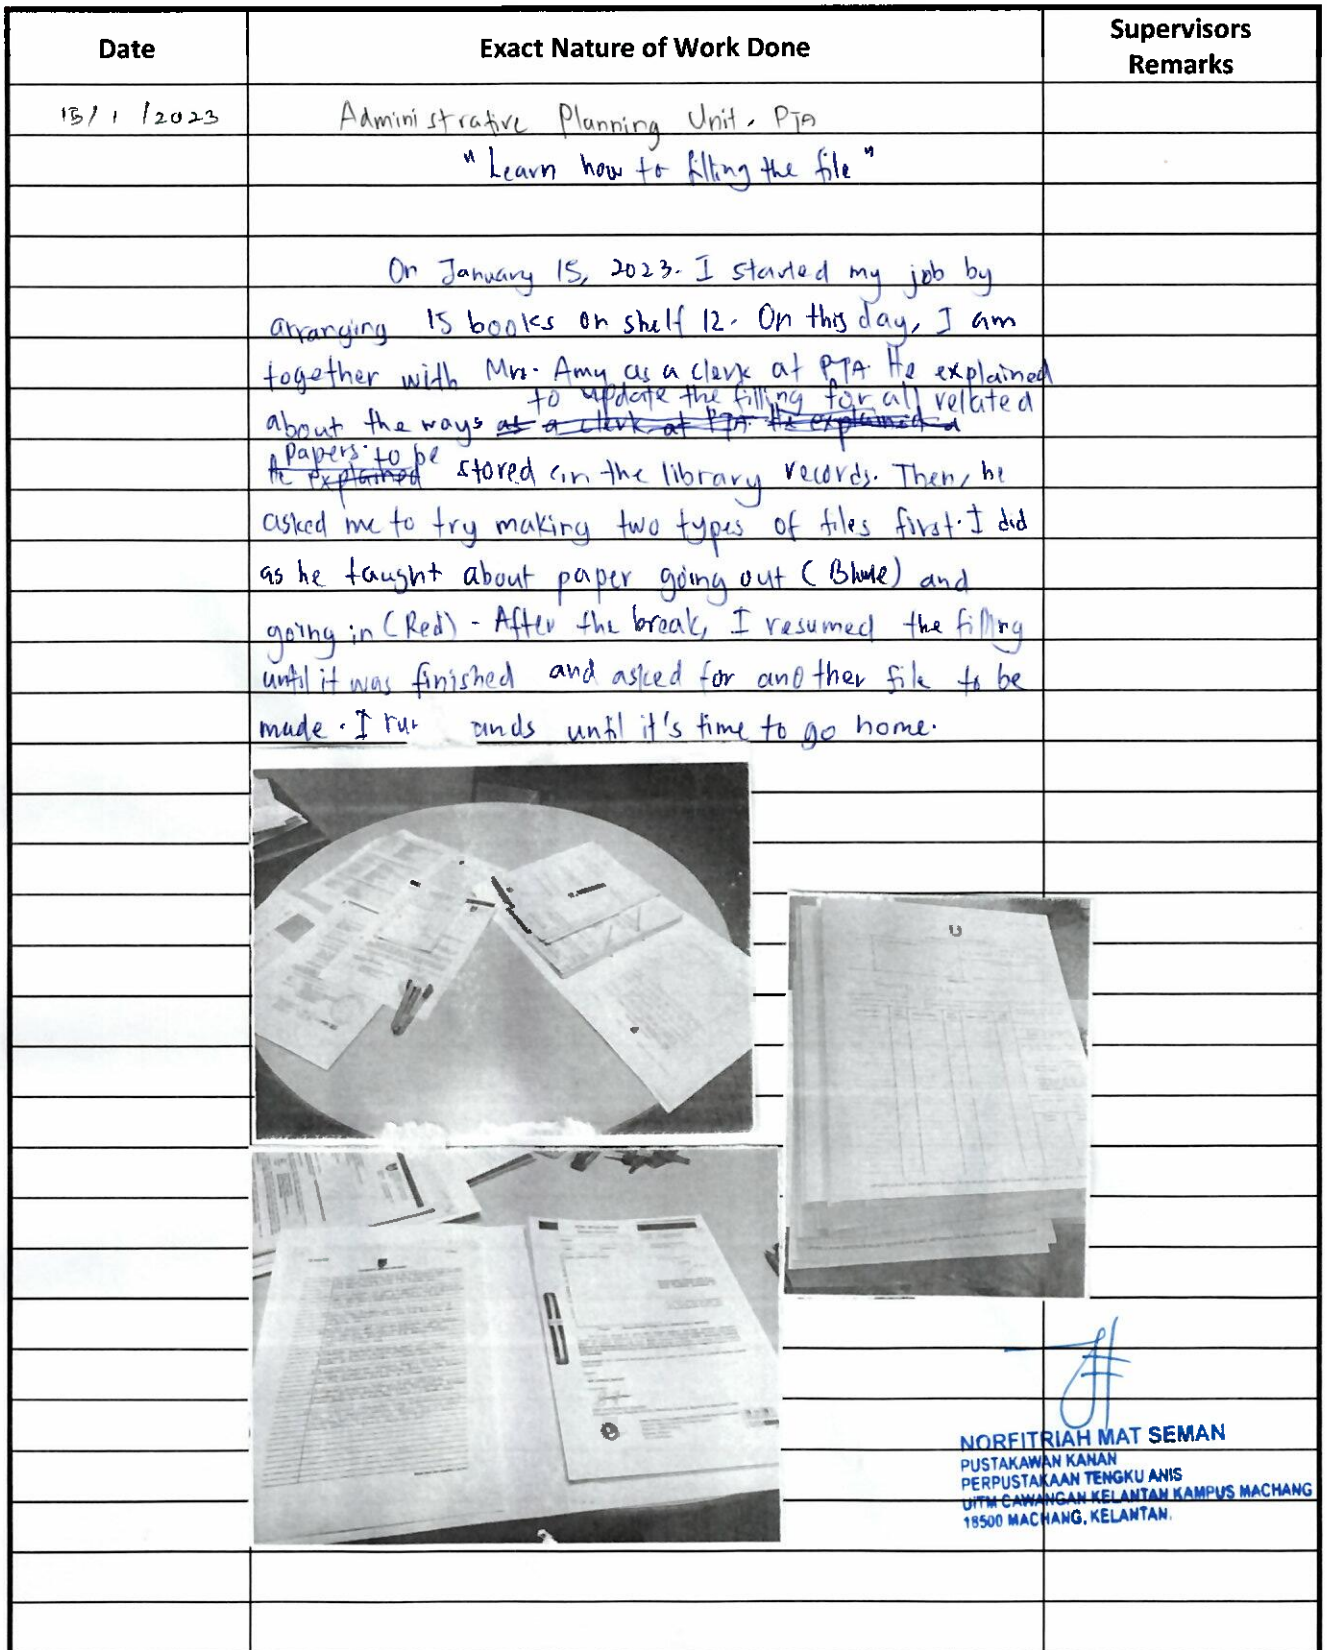 Date
Exact Nature of Work Done
Supervisors
Remarks
15/1/2023
Administrative Planning Unit, PTA
"Learn how to filling the file"
On January 15, 2023. I started my job by
arranging 15 books on shelf 12. On this day, I am
together with Mrs. Amy as a clerk at PTA. He explained
to update the filling for all related
about the ways as a clerk at PTA. He explained a
Papers to be
He explained stored in the library records. Then, he
asked me to try making two types of files first. I did
as he taught about paper going out (Blue) and
going in (Red). After the break, I resumed the filling
until it was finished and asked for another file to be
made. I run ands until it's time to go home.
NORFITRIAH MAT SEMAN
PUSTAKAWAN KANAN
PERPUSTAKAAN TENGKU ANIS
UiTM CAWANGAN KELANTAN KAMPUS MACHANG
18500 MACHANG, KELANTAN.